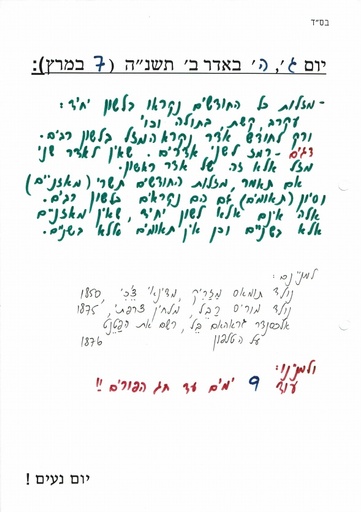 בס״ד
יום ג׳, ה׳ באדר ב׳ תשנ״ה (7 במרץ):
- מזלות כל החודשים נקראו בלשון יחיד:
עקרב, קשת, בתולה וכו׳
ורק לחודש אדר נקרא המזל בלשון רבים.
דגים - רמז לשני אדרים. שאין לאדר שני
מזל אלא זה של אדר ראשון.
אם תאמר, מזלות החודשים תשרי (מאזניים)
וסיון (תאומים) גם הם נקראים בלשון רבים.
אלה אינם אלא לשון יחיד, שאין מאזנים
אלא בשניים וכן אין תאומים אלא בשנים.
למניינם:
נולד תומאס מַזַרִיק, מדינאי צֶ׳כִי 1850
נולד מוריס רַבֶל, מלחין צרפתי, 1875
אלכסנדר גראהאם בֶּל, רשם את הפַּטֶנט
על הטלפון 1876
ולמניננו:
עוד 9 ימים עד חג הפורים !!
יום נעים !